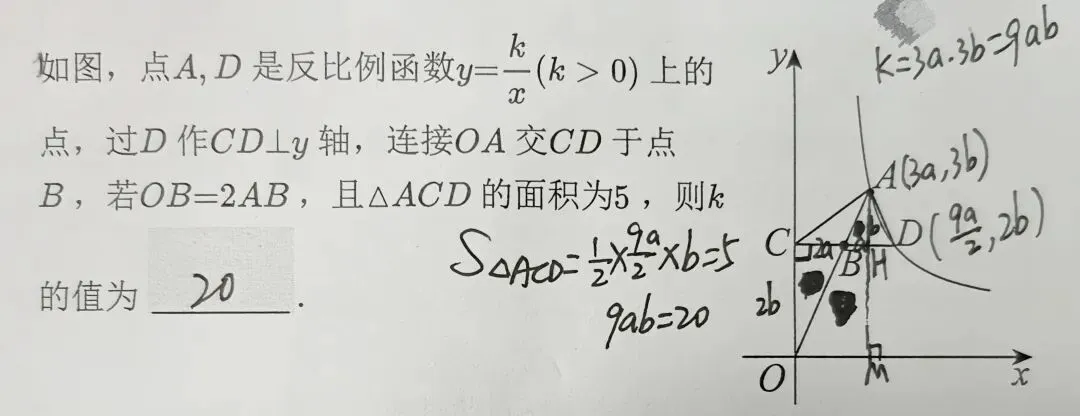 如图，点A, D 是反比例函数y=k/x(k > 0) 上的
点，过D 作CD⊥y 轴，连接OA 交CD 于点
B，若OB=2AB，且△ACD 的面积为5，则k
的值为 20 .
S△ACD=1/2×9a/2×b=5
9ab=20
k=3a·3b=9ab
y
A(3a,3b)
b
C 2a B H D(9a/2,2b)
2b
O M x